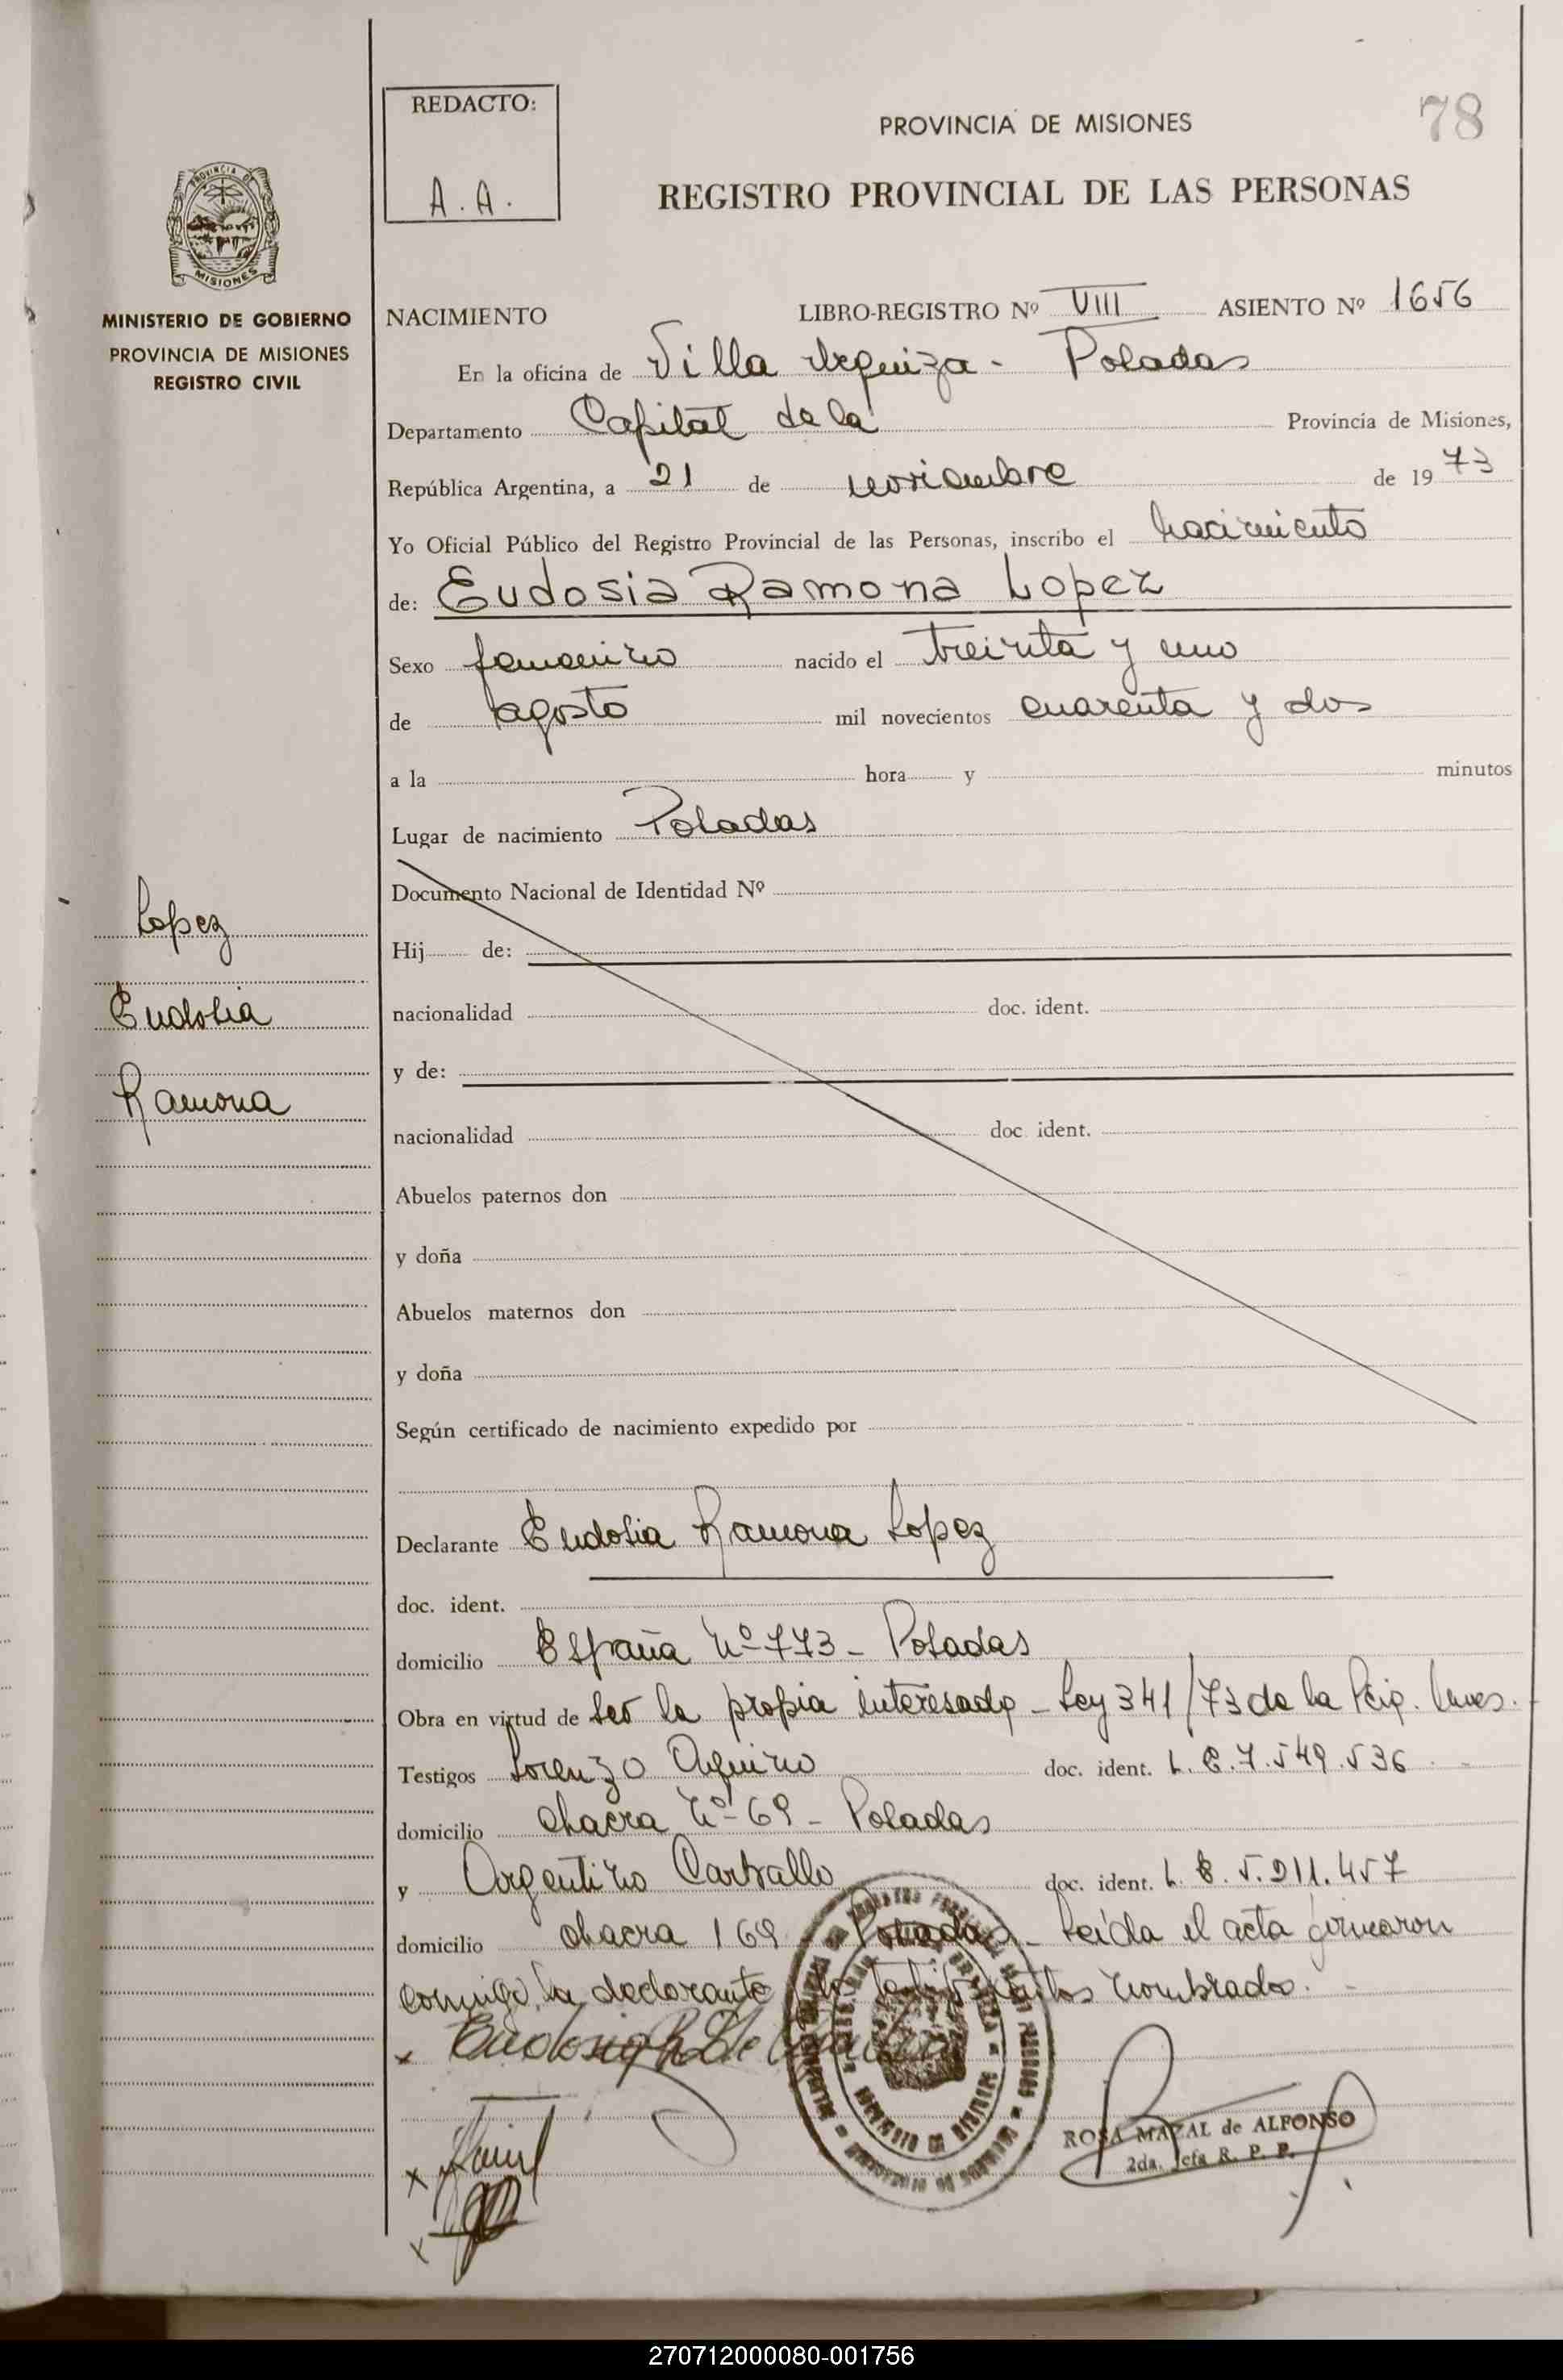 REDACTO:
A.A.
78
PROVINCIA DE MISIONES
REGISTRO PROVINCIAL DE LAS PERSONAS
PROVINCIA DE
MISIONES
MINISTERIO DE GOBIERNO
PROVINCIA DE MISIONES
REGISTRO CIVIL
NACIMIENTO LIBRO-REGISTRO Nº VIII ASIENTO Nº 1656
En la oficina de Villa Urquiza - Posadas
Departamento Capital de la Provincia de Misiones,
República Argentina, a 21 de noviembre de 1973
Yo Oficial Público del Registro Provincial de las Personas, inscribo el nacimiento
de: Eudosia Ramona Lopez
Sexo femenino nacido el treinta y uno
de agosto mil novecientos cuarenta y dos
a la hora y minutos
Lugar de nacimiento Posadas
Documento Nacional de Identidad Nº
Hij de:
nacionalidad doc. ident.
y de:
nacionalidad doc ident.
Abuelos paternos don
y doña
Abuelos maternos don
y doña
Según certificado de nacimiento expedido por
Lopez
Eudosia
Ramona
Declarante Eudosia Ramona Lopez
doc. ident.
domicilio España Nº 773 - Posadas
Obra en virtud de ser la propia interesada - Ley 341/73 de la Pcia. Mnes.
Testigos Lorenzo Aquino doc. ident. L.E. 7.549.536
domicilio chacra Nº 69 - Posadas
y Argentino Carballo doc. ident. L.E. 5.211.457
domicilio chacra 169 Posadas - Leída el acta firmaron
conmigo, la declarante los testigos nombrados.
ROSA MAZAL de ALFONSO
2da. Jefa R. P. P.
270712000080-001756